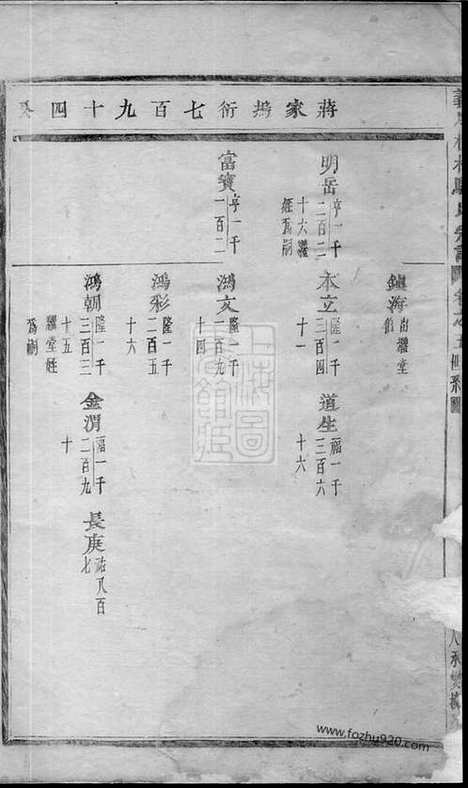 蔣家塢衍七百九十四癸
明岳
亨一千二百二十六繼經爲嗣
富寶
亨一千一百二
鎮海
出繼堂伯
本立
隆一千三百四十一
道生
福一千三百六十六
鴻文
隆一千一百九十四
鴻彩
隆一千二百五十六
鴻朝
隆一千三百三十五
繼堂姪爲嗣
金渭
福一千二百九十
長庚
祐八百七
世系圖
www.fozhu920.com